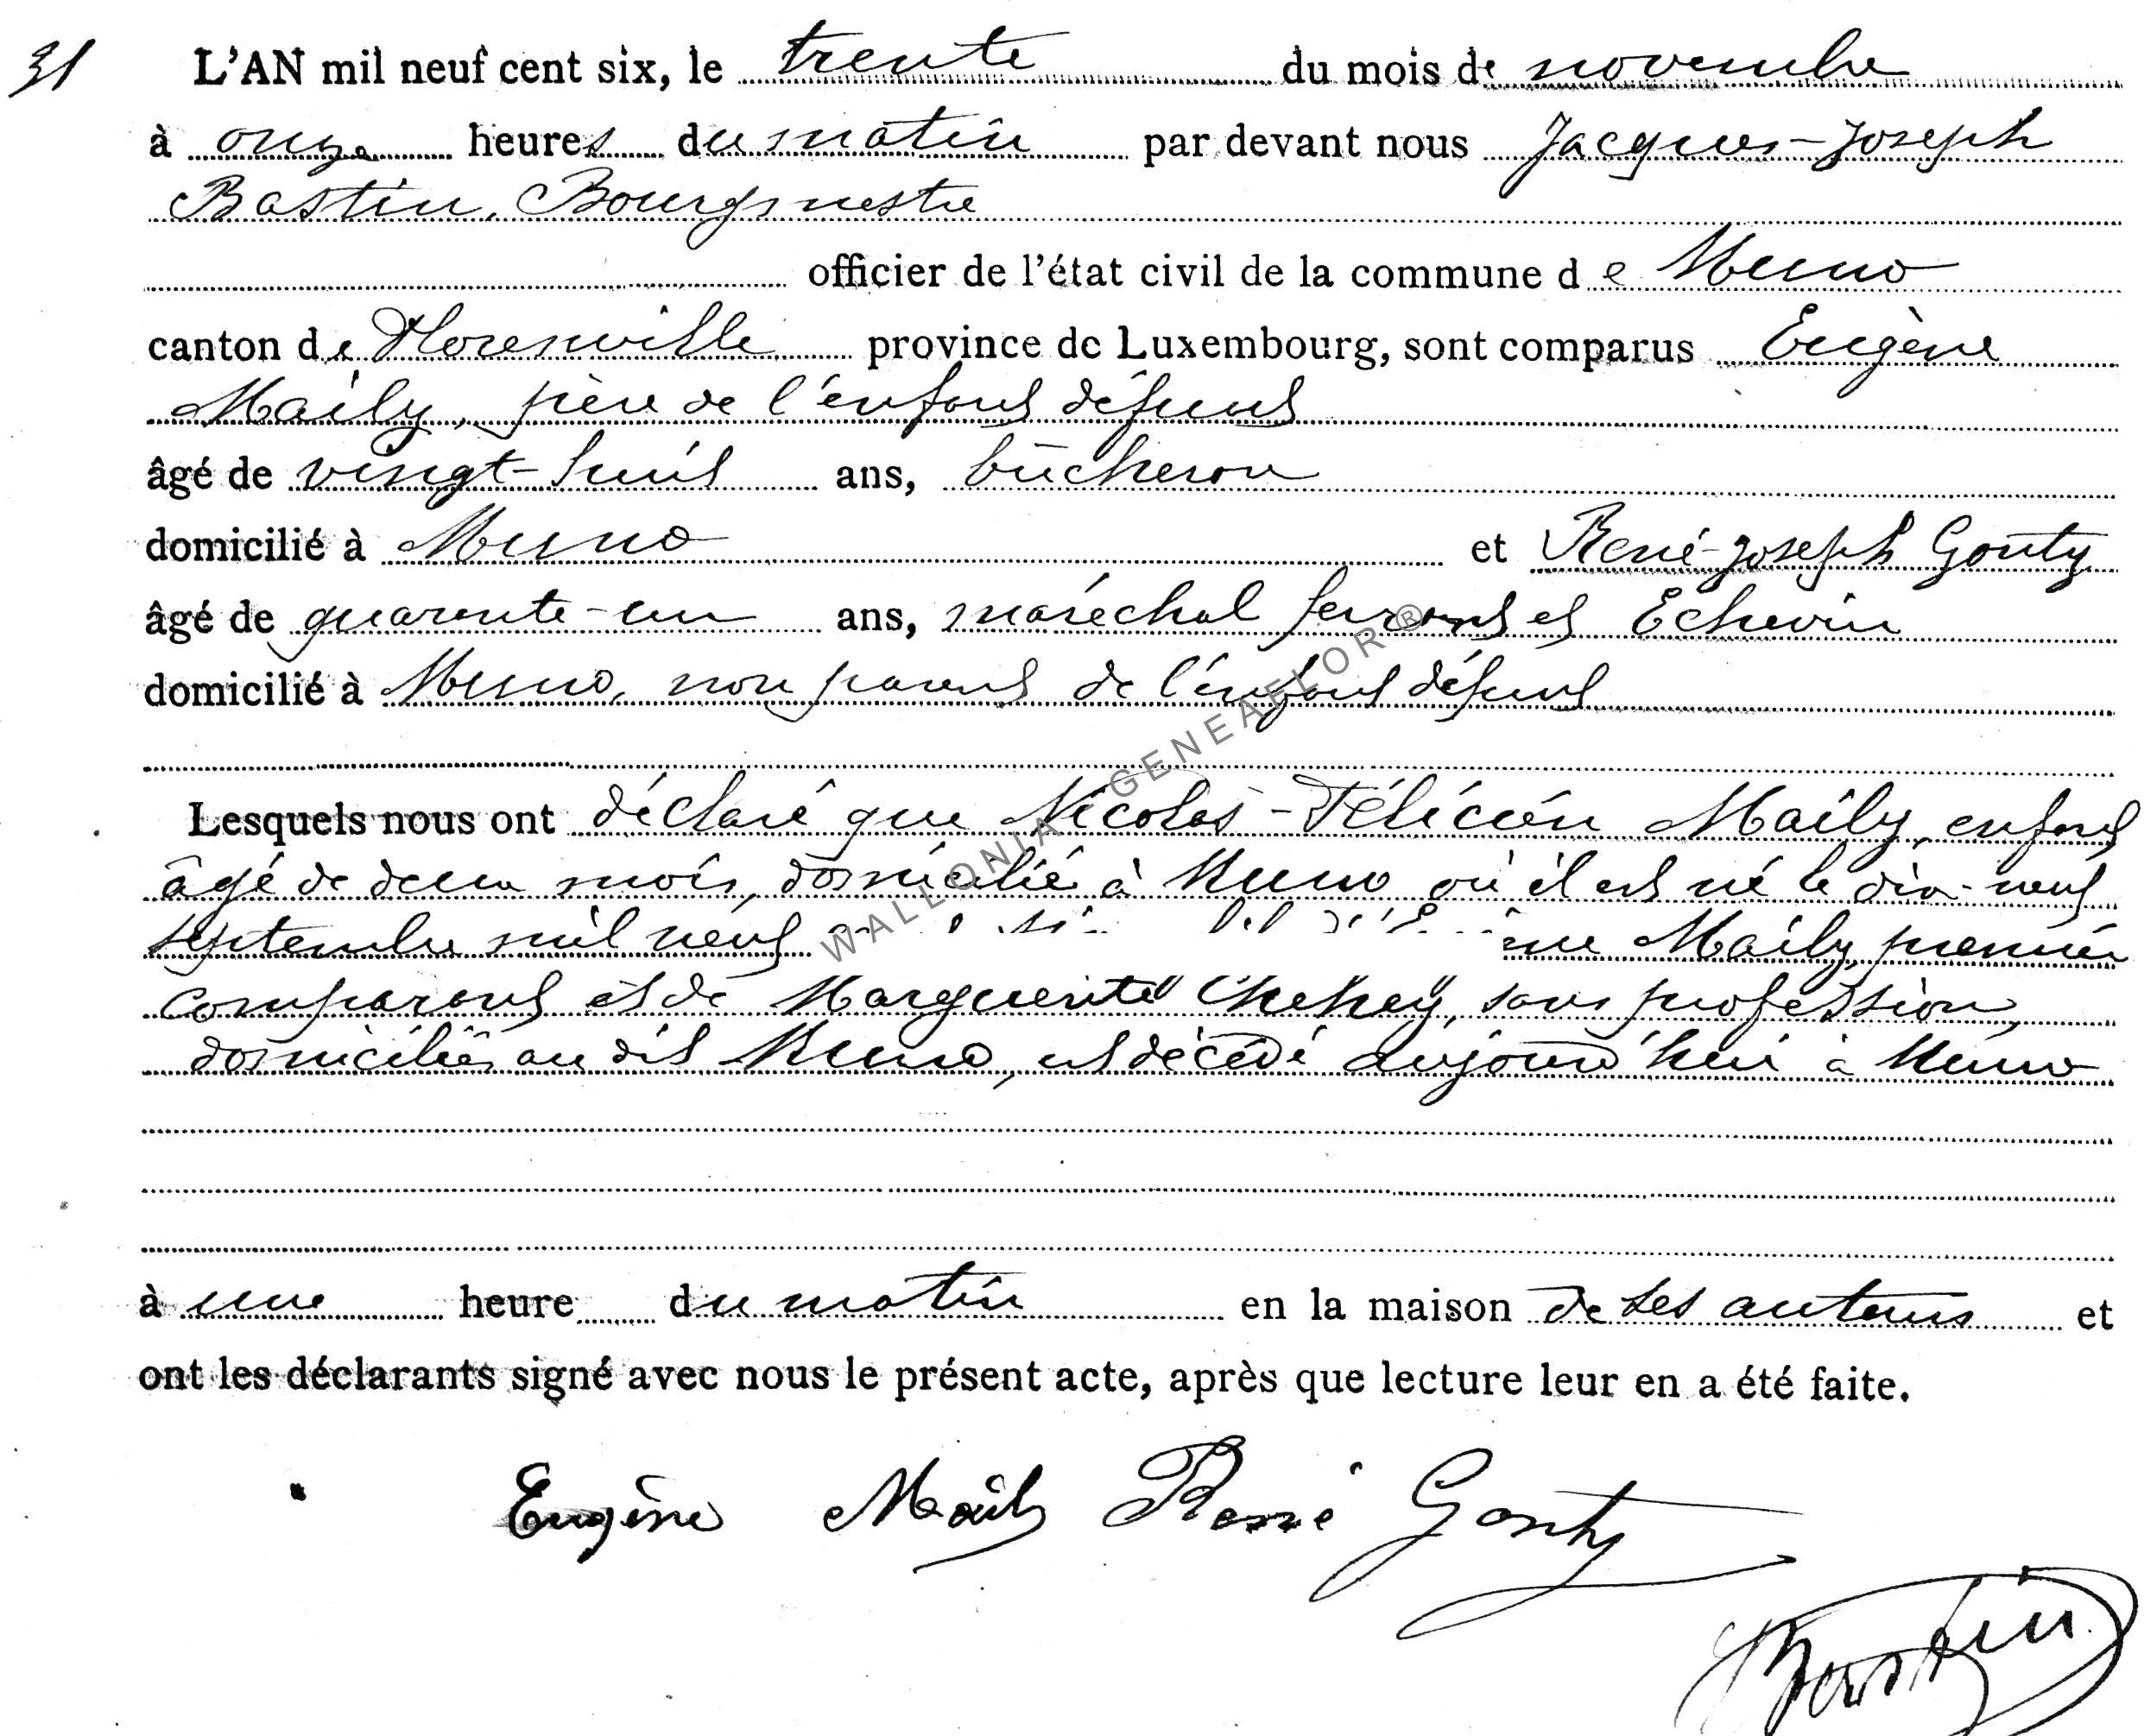 31 L'AN mil neuf cent six, le trente du mois de novembre
à onze heures du matin par devant nous Jacques-Joseph
Bastin, Bourgmestre
officier de l'état civil de la commune de Muno
canton de Florenville province de Luxembourg, sont comparus Eugène
Maily, père de l'enfant défunt
âgé de vingt-huit ans, bûcheron
domicilié à Muno et René-Joseph Gonty
âgé de quarante-un ans, maréchal ferrant et Echevin
domicilié à Muno, non parent de l'enfant défunt
Lesquels nous ont déclaré que Nicolas-Félicien Maily, enfant
âgé de deux mois, domicilié à Muno où il est né le dix-neuf
septembre mil neuf Maily, premier
comparant et de Marguerite Chehey, sans profession,
domiciliés au dit Muno, est décédé aujourd'hui à Muno
à une heure du matin en la maison de ses auteurs et
ont les déclarants signé avec nous le présent acte, après que lecture leur en a été faite.
Eugène Maily René Gonty
Bastin
WALLONIA GENEAFLOR ®